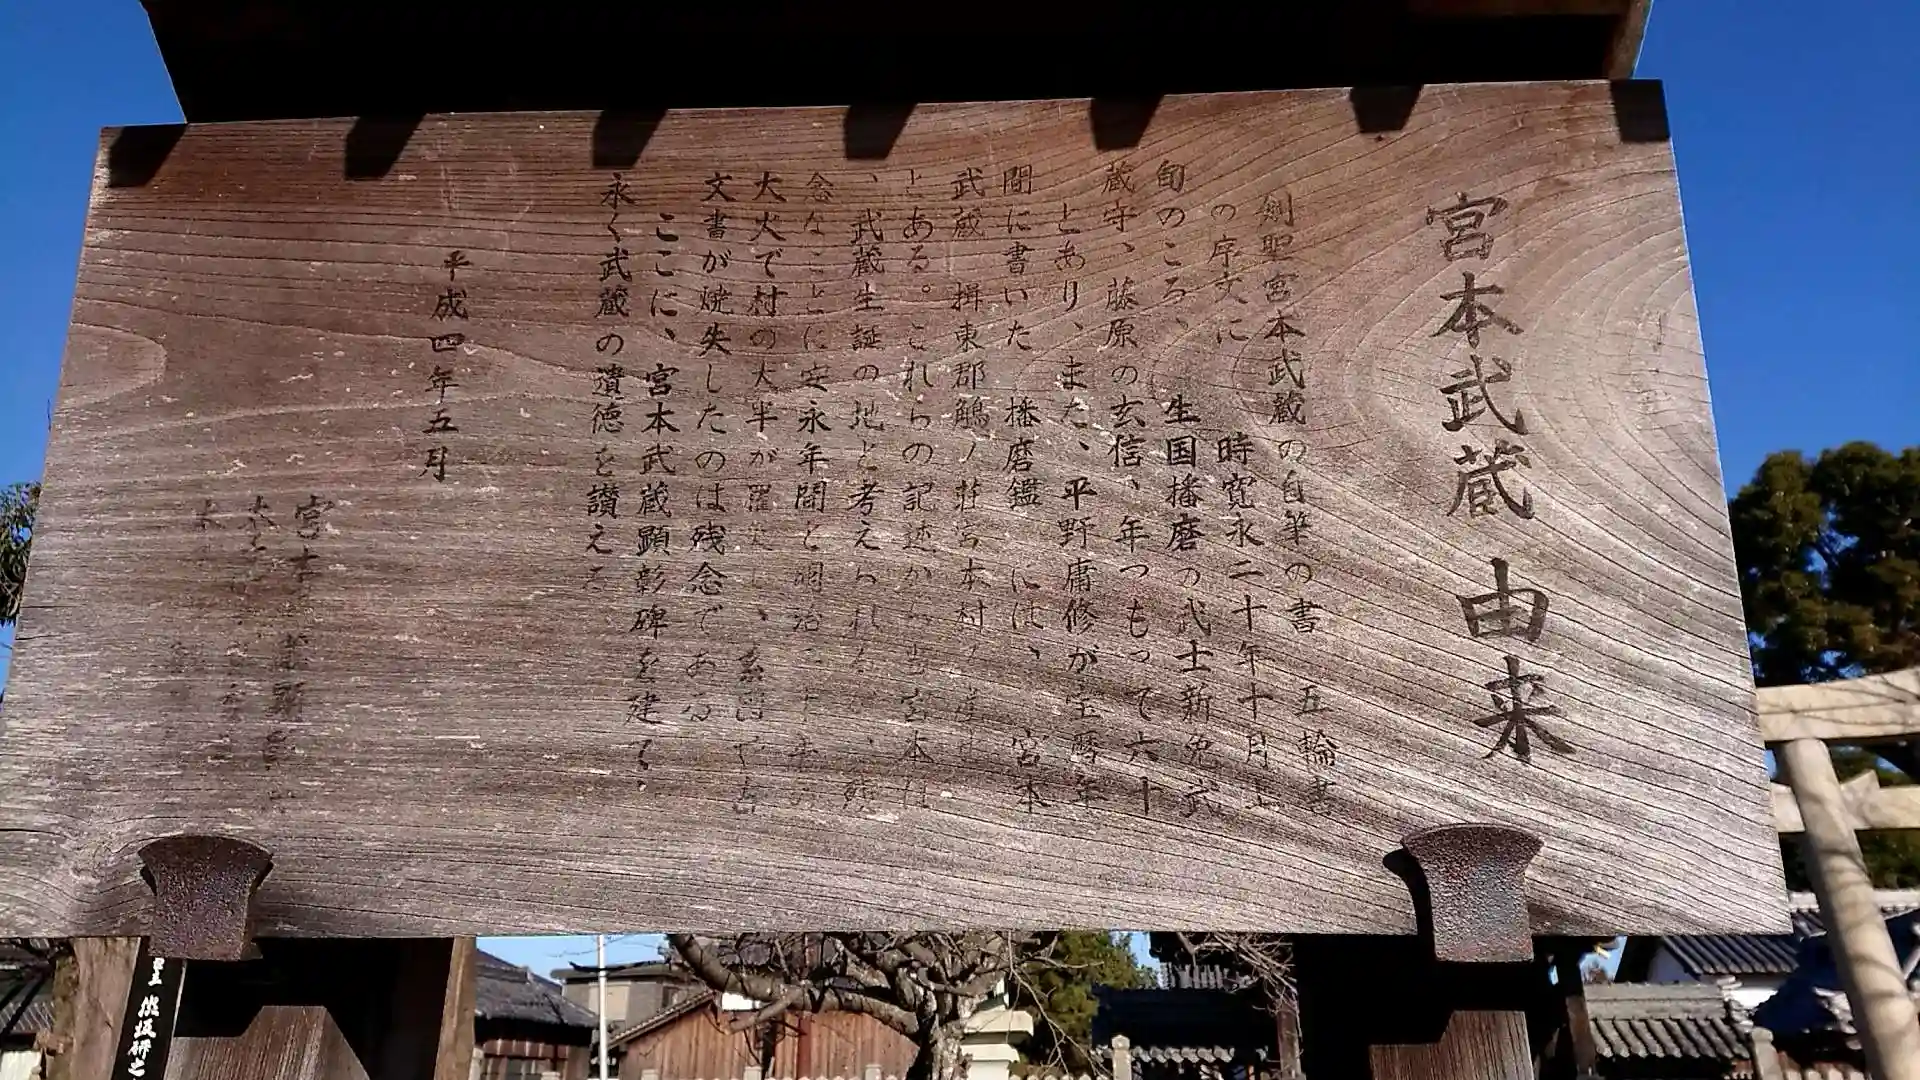 宮本武蔵 由来
剣聖宮本武蔵の自筆の書 五輪書
の序文に 時寛永二十年十月上
旬のころ、 生国播磨の武士新免武
蔵守、藤原の玄信、年つもって六十
とあり、また、平野庸修が宝暦年
間に書いた 播磨鑑 には、 宮本
武蔵 揖東郡鵤ノ荘宮本村
とある。これらの記述から 宮本
、武蔵生誕の地と考えられ 、残
念なことに安永年間と明治
大火で村の大半が罹災 、系図や古
文書が焼失したのは残念である
ここに、宮本武蔵顕彰碑を建て
永く武蔵の遺徳を讃える
平成四年五月
宮本
熊坂研之